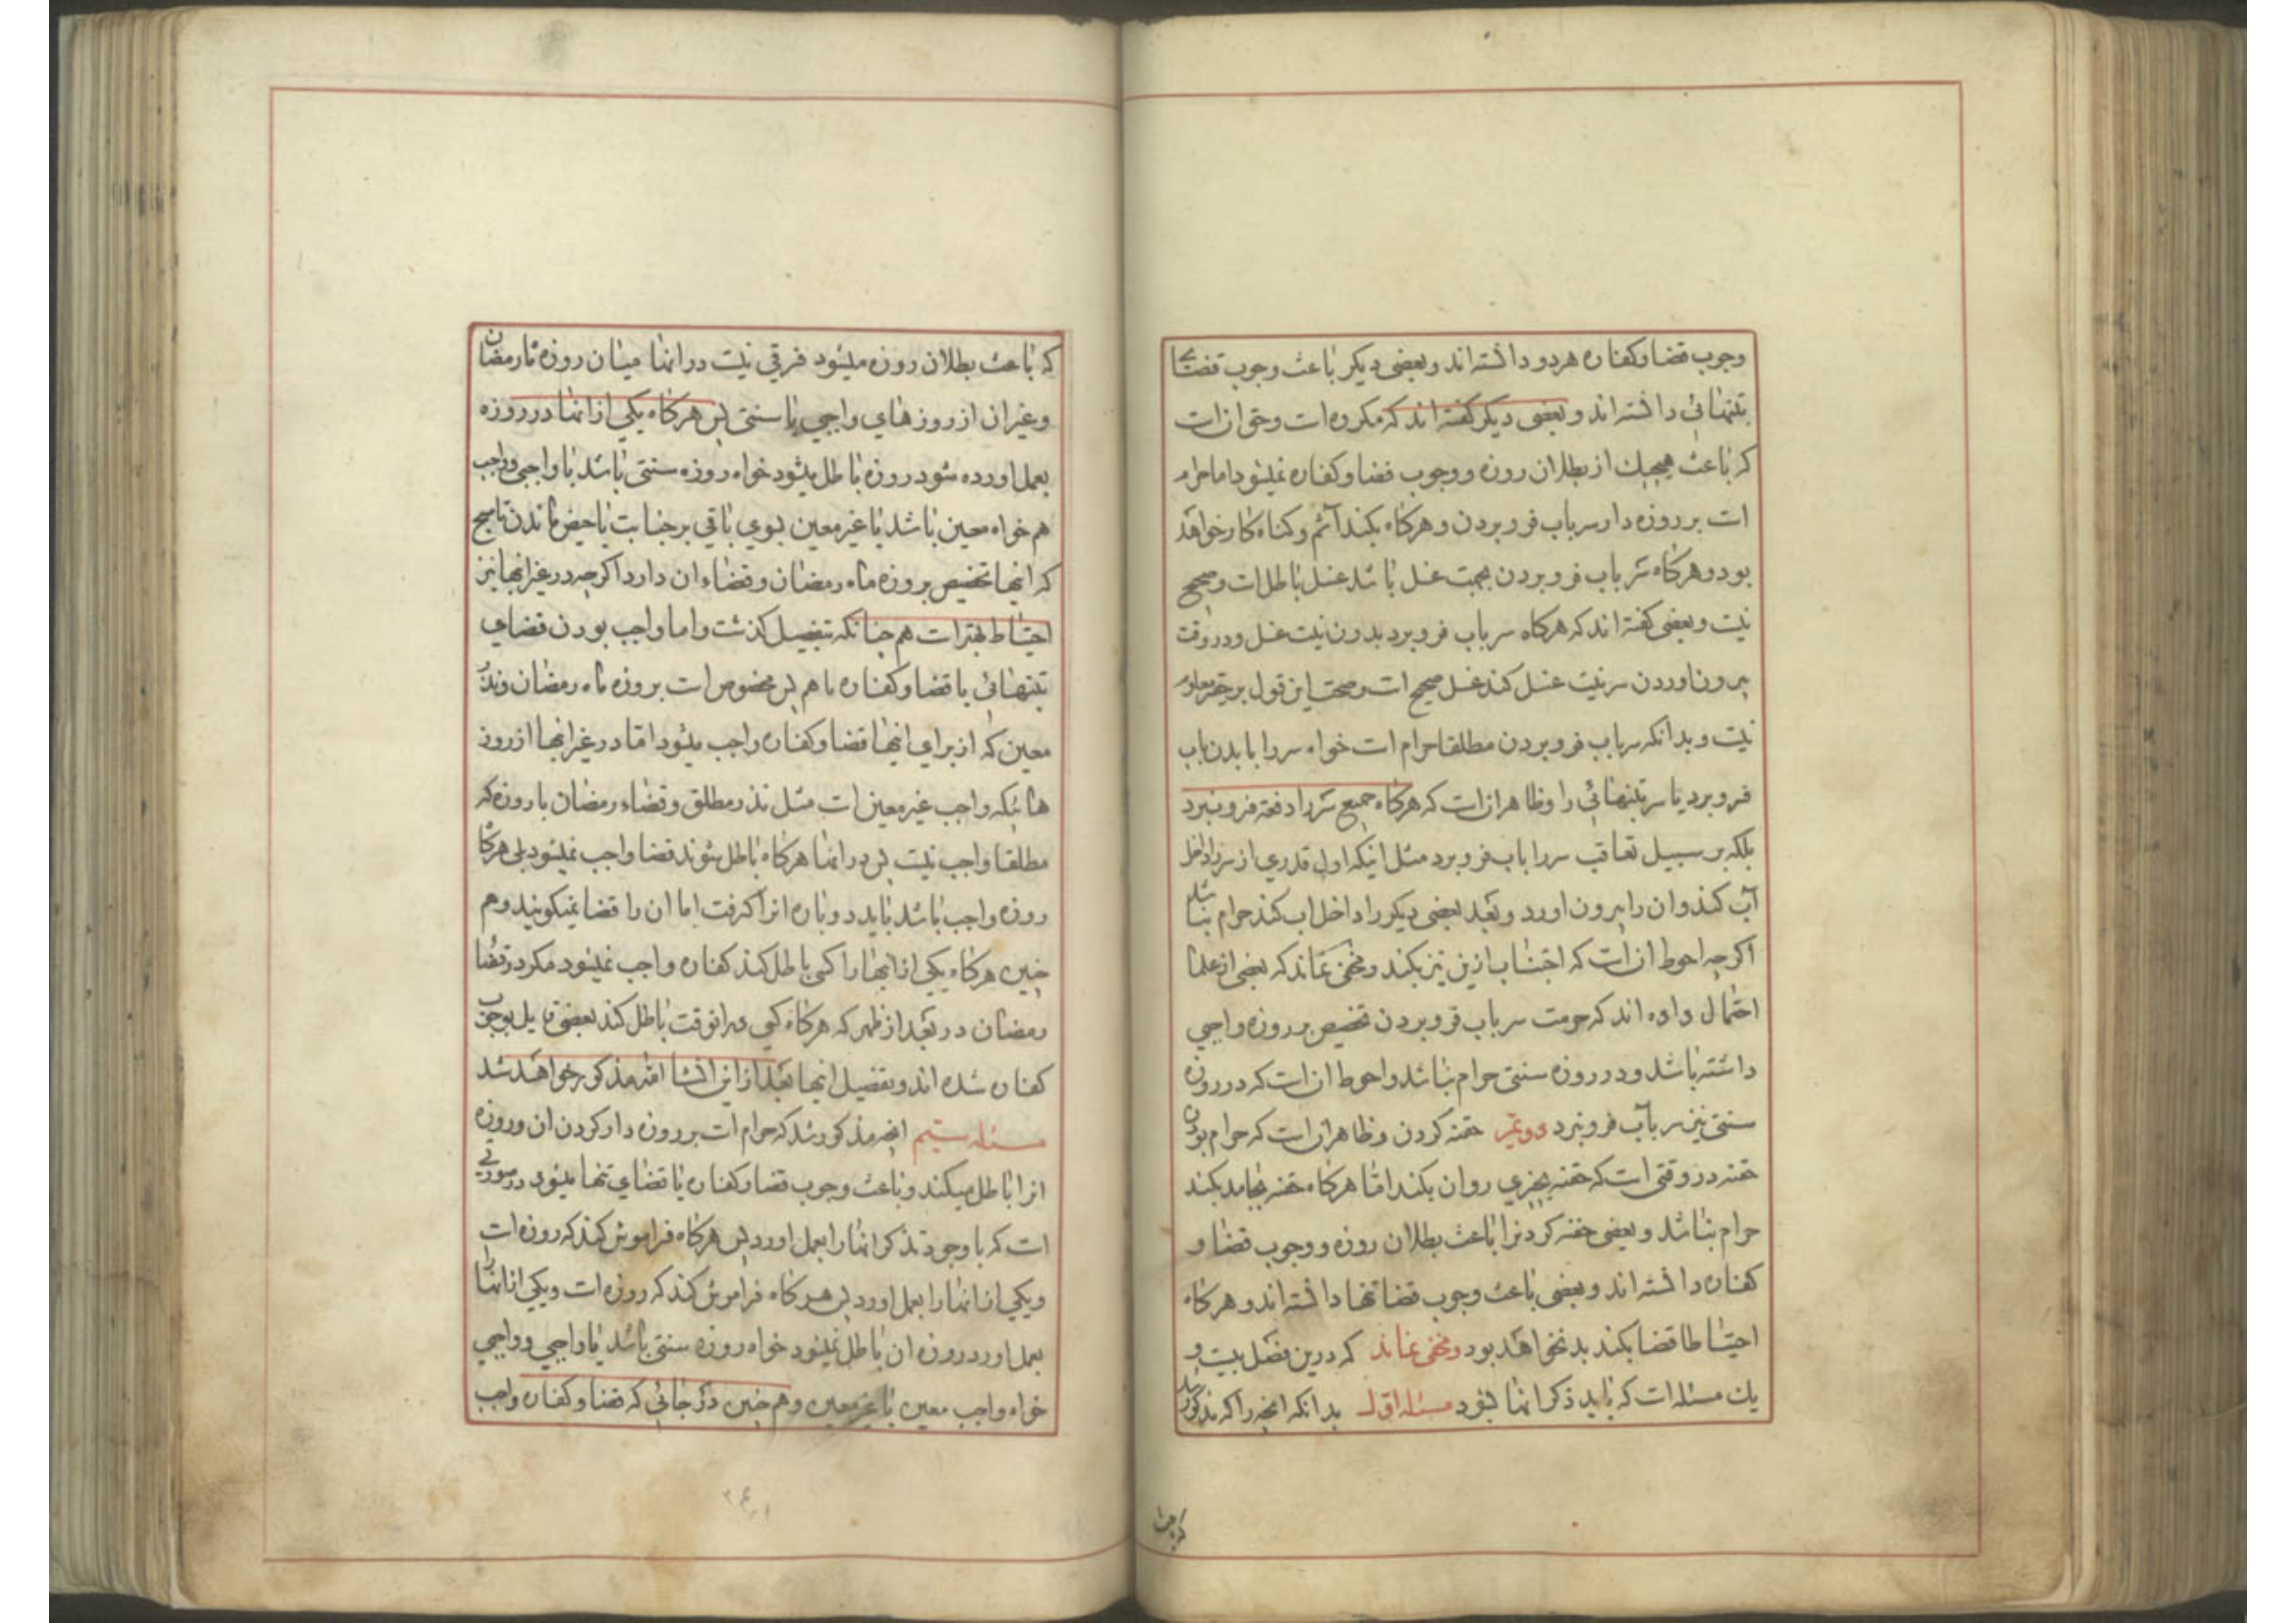 وجوب قضا و کفاره هر دو دانسته اند و بعضی دیکر باعث وجوب قضای
بتنهائی دانسته اند و بعضی دیکر کفته اند که مکروه است و حق ان است
که باعث هیچیك از بطلان روزه و وجوب قضا و کفاره نمیشود اما حرام
است بر روزه دار سر باب فرو بردن و هرکاه بکند آثم و کناه کار خواهد
بود و هرکاه سر باب فرو بردن بجهت غسل باشد غسل باطل است و صحیح
نیست و بعضی کفته اند که هرکاه سر باب فرو برد بدون نیت غسل و در وقت
بیرون اوردن سر نیت غسل کند غسل صحیح است و صحت این قول بر حقیر معلوم
نیست و بدانکه سر باب فرو بردن مطلقا حرام است خواه سر را با بدن باب
فرو برد یا سر بتنهائی را و ظاهر ان است که هرکاه جمیع سر را دفعة فرو نبرد
بلکه بر سبیل تعاقب سر را باب فرو برد مثل اینکه اول قدری از سر را داخل
آب کند و ان را بیرون اورد و بعد بعضی دیکر را داخل اب کند حرام نباشد
اکرچه احوط ان است که اجتناب ازین نیز بکند و مخفی نماند که بعضی از علما
احتمال داده اند که حرمت سر باب فرو بردن تخصیص بر روزه واجبی
داشته باشد و در روزه سنتی حرام نباشد و احوط ان است که در روزه
سنتی نیز سر بآب فرو نبرد دویم حقنه کردن و ظاهر ان است که حرام بودن
حقنه در وقتی است که حقنه بچیزی روان بکند امّا هرکاه حقنه بجامد بکند
حرام نباشد و بعضی حقنه کردنرا باعث بطلان روزه و وجوب قضا و
کفاره دانسته اند و بعضی باعث وجوب قضا تنها دانسته اند و هرکاه
احتیاطا قضا بکند بد نخواهد بود و مخفی نماند که درین فصل بیست و
یك مسئله است که باید ذکر انها بشود مسئله اول بدانکه انچه را که مذکور شد
که باعث
که باعث بطلان روزه میشود فرقی نیست در انها میان روزه ماه رمضان
و غیر ان از روز های واجبی یا سنتی پس هرکاه یکی از انها در روزه
بعمل اورده شود روزه باطل میشود خواه روزه سنتی باشد یا واجبی و واجب
هم خواه معین باشد یا غیر معین بسوی باقی بر جنابت یا حیض ماندن تا صبح
که اینها تخصیص بروزه ماه رمضان و قضاء ان دارد اکرچه در غیر انها نیز
احتیاط بهتر است هم چنانکه بتفصیل کذشت و اما واجب بودن قضای
بتنهائی یا قضا و کفاره با هم پس مخصوص است بروزه ماه رمضان و نذر
معین که از برای انها قضا و کفاره واجب میشود امّا در غیر انها از روز
هائیکه واجب غیر معین است مثل نذر مطلق و قضاء رمضان یا روزه که
مطلقا واجب نیست پس در انها هرکاه باطل شوند قضا واجب نمیشود بلی هرکاه
روزه واجب باشد باید دوباره انرا کرفت اما ان را قضا نمیکویند و هم
چنین هرکاه یکی از انها را کسی باطل کند کفاره واجب نمیشود مکر در قضا
رمضان در بعد از ظهر که هرکاه کسی در انوقت باطل کند بعضی قایل بوجوب
کفاره شده اند و تفصیل انها بعد از این انشا الله مذکور خواهد شد
مسئله سیم انچه مذکور شد که حرام است بر روزه دار کردن ان و روزه
انرا باطل میکند و باعث وجوب قضا و کفاره یا قضای تنها میشود در صورتی
است که با وجود تذکر انها را بعمل اورد پس هرکاه فراموش کند که روزه است
و یکی از انها را بعمل اورد پس هرکاه فراموش کند که روزه است و یکی از انها را
بعمل اورد روزه ان باطل نمیشود خواه روزه سنتی باشد یا واجبی و واجبی
خواه واجب معین یا غیر معین و هم چنین در جائی که قضا و کفاره واجب